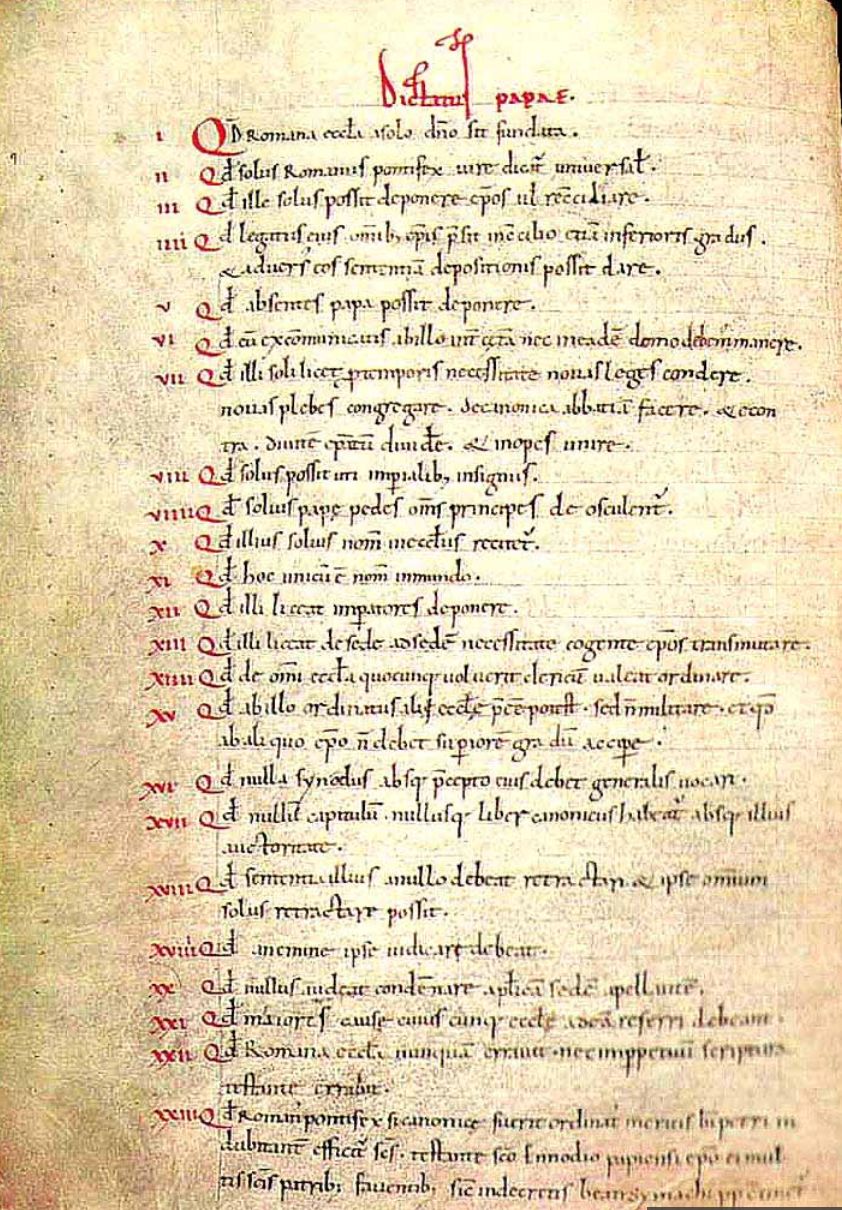 Dictatus papae.
i Qd Romana eccła a solo dño sit fundata.
ii Qd solus Romanus pontifex iure dicat᷑ universał.
iii Qd ille solus possit deponere ep̄os uł recc̄iliare.
iiii Qd legatus eius om̄ib; ep̄is p̄sit in c̄cilio etiā inferioris gradus.
& adversꝰ eos sententiā depositionis possit dare.
v Qd absentes papa possit deponere.
vi Qd cū excōmunicatis ab illo int᷑ cęt̄a nec in eadē domo debemꝰ manere.
vii Qd illi soli licet p̱ temporis necessitate novas leges condere.
novas plebes congregare. de canonica abbatiā facere. & econ
tra. divitē ep̄atū divide͛. & inopes unire.
viii Qd solus possit uti imp̱ialib; insigniis.
viiii Qd solius papę pedes om̄s principes deosculent᷑.
x Qd illius solius nom̄ in eccłiis recitet᷑.
xi Qd hoc unicū ē nom̄ in mundo.
xii Qd illi liceat imp̱atores deponere.
xiii Qd illi liceat de sede ad sedē necessitate cogente ep̄os transmutare.
xiiii Qd de om̄i eccła quocunq; voluerit clericū valeat ordinare.
xv Qd ab illo ordinatus alii eccłę p̄ee͛ potest. sed ñ militare. et qđ
ab aliquo ep̄o ñ debet sup̱iorē gradū accipe͛.
xvi Qd nulla synodus absq; p̄cepto eius debet generalis vocari.
xvii Qd nullū capitulū. nullusq; liber canonicus habeat᷑ absq; illius
auctoritate.
xviii Qd sententia illius a nullo debeat retractari & ipse omnium
solus retractare possit.
xviiii Qd a nemine ipse iudicare debeat.
xx Qd nullus audeat condēnare ap̄licā sedē apellantē.
xxi Qd maiores cause cuiuscunq; eccłę ad eā referri debeant.
xxii Qd Romana eccła nunquā erravit. nec imp̱petuū scriptura
testante errabit.
xxiii Qd Romanꝰ pontifex si canonice fuerit ordinatꝰ meritis b̄i petri in
dubitant͛ efficit᷑ sc̄s. testante sc̄o Ennodio papiensi ep̄o ei mul
tis sc̄is patribꝰ faventibꝰ sic̄ in decretis beati symachi pp̄ continet᷑